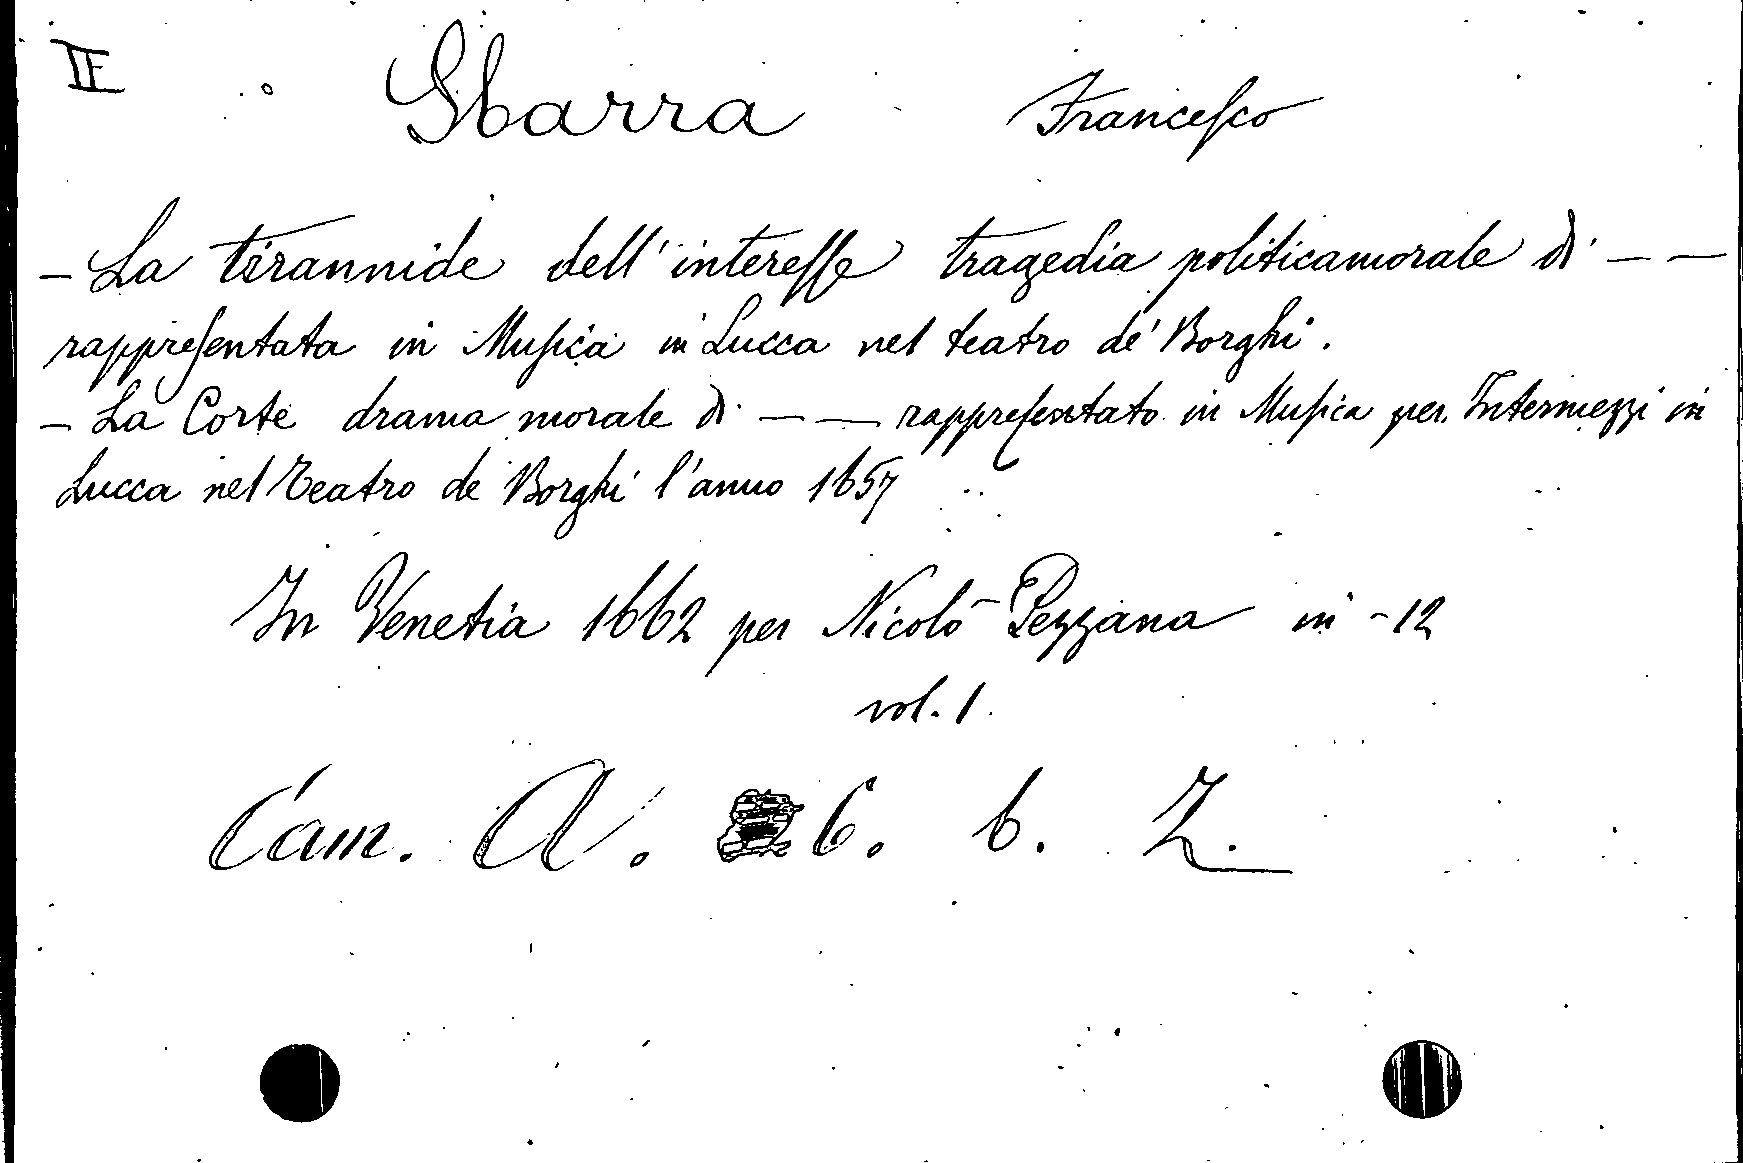 II Sbarra Francesco
- La tirannide dell'interesse tragedia politicamorale di — —
rappresentata in Musica in Lucca nel teatro de' Borghi.
- La Corte drama morale di — — rappresentato in Musica per Intermezzi in
Lucca nel Teatro de Borghi l'anno 1657
In Venetia 1662 per Nicolò Pezzana in -12
vol. 1.
Cam. A. 6. b. 2.